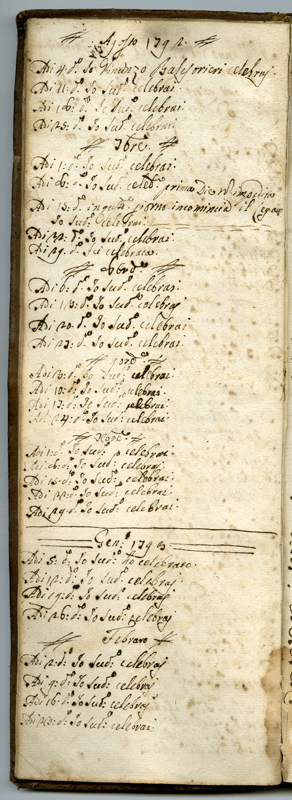 Agosto 1792
Adi 4: d.o Io Vinenzo Salesorieri celebraj
Adi 11: d.o Io Sud.o celebrai
Adi 18: d.o Io Sud.o celebrai
Adi 25: d.o Io Sud.o celebrai
7bre
Adi 1: d.o Io Sud.o celebrai
Adi 8: d.o Io Sud.o celeb.
Adi 15: d.o giorno incomincia il
Io Sud.o celebrai
Adi 22: d.o Io Sud.o celebrai
Adi 29: d.o celebrato
8bre
Adi 6: d.o Io Sud.o celebrai
Adi 13: d.o Io Sud.o celebraj
Adi 20: d.o Io Sud.o celebrai
Adi 27: d.o Io Sud.o celebrai
9bre
Adi 3: d.o Io Sud.o celebrai
Adi 10: d.o Io Sud.o celebrai
Adi 17: d.o Io Sud.o celebrai
Adi 24: d.o Io Sud.o celebrai
Xbre
Adi 1: d.o Io Sud.o celebrai
Adi 8: d.o Io Sud.o celebraj
Adi 15: d.o Io Sud.o celebrai
Adi 22: d.o Io Sud.o celebrai
Adi 29: d.o Io Sud.o celebrai
Gen: 1793
Adi 5: d.o Io Sud.o ho celebrato
Adi 12: d.o Io Sud.o celebraj
Adi 19: d.o Io Sud.o celebraj
Adi 26: d.o Io Sud.o celebraj
Febraro
Adi 2: d.o Io Sud.o celebraj
Adi 9: d.o Io Sud.o celebraj
Adi 16: d.o Io Sud.o celebraj
Adi 23: d.o Io Sud.o celebrai